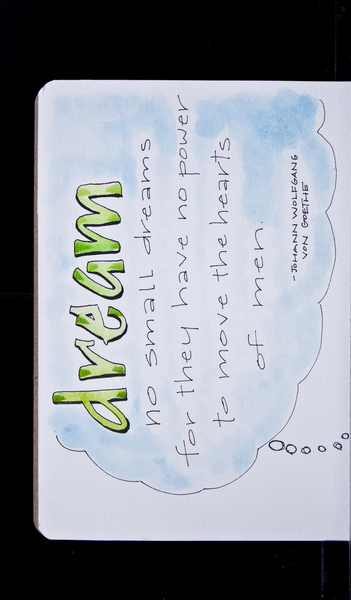 dream
no small dreams
for they have no power
to move the hearts
of men.
-JOHANN WOLFGANG
VON GOETHE